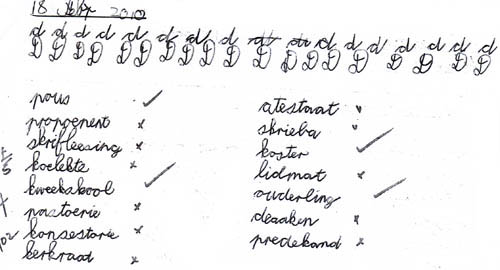 18 2010
d d d d d d d d d d d d d d d d d d d
D D D D D D D D D D D D D D D D D D D
pous
proponent
skriflesing
koelekte
kweekskool
pastoerie
konsestorie
kerkraad
atestaat
skrieba
koster
lidmat
ouderling
deaaken
predekand